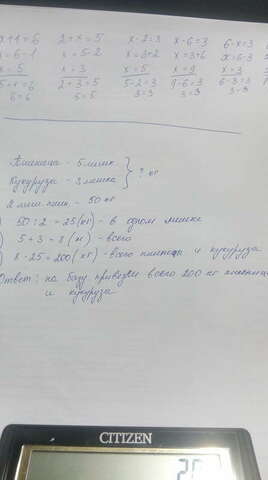 x+1=6 2+x=5 x-2=3 x-6=3 6-x=3
x=6-1 x=5-2 x=3+2 x=3+6 x=6-3
x=5 x=3 x=5 x=9 x=3
5+1=6 2+3=5 5-2=3 9-6=3 6-3=3
6=6 5=5 3=3 3=3 3=3
Пшеница - 5 мешк.
Кукуруза - 3 мешка } ? кг
2 меш. пшен. - 50 кг
) 50:2=25(кг) - в одном мешке
) 5+3=8(м) - всего
) 8·25=200(кг) - всего пшеницы и кукурузы
Ответ: на базу привезли всего 200 кг пшеницы
и кукурузы
CITIZEN